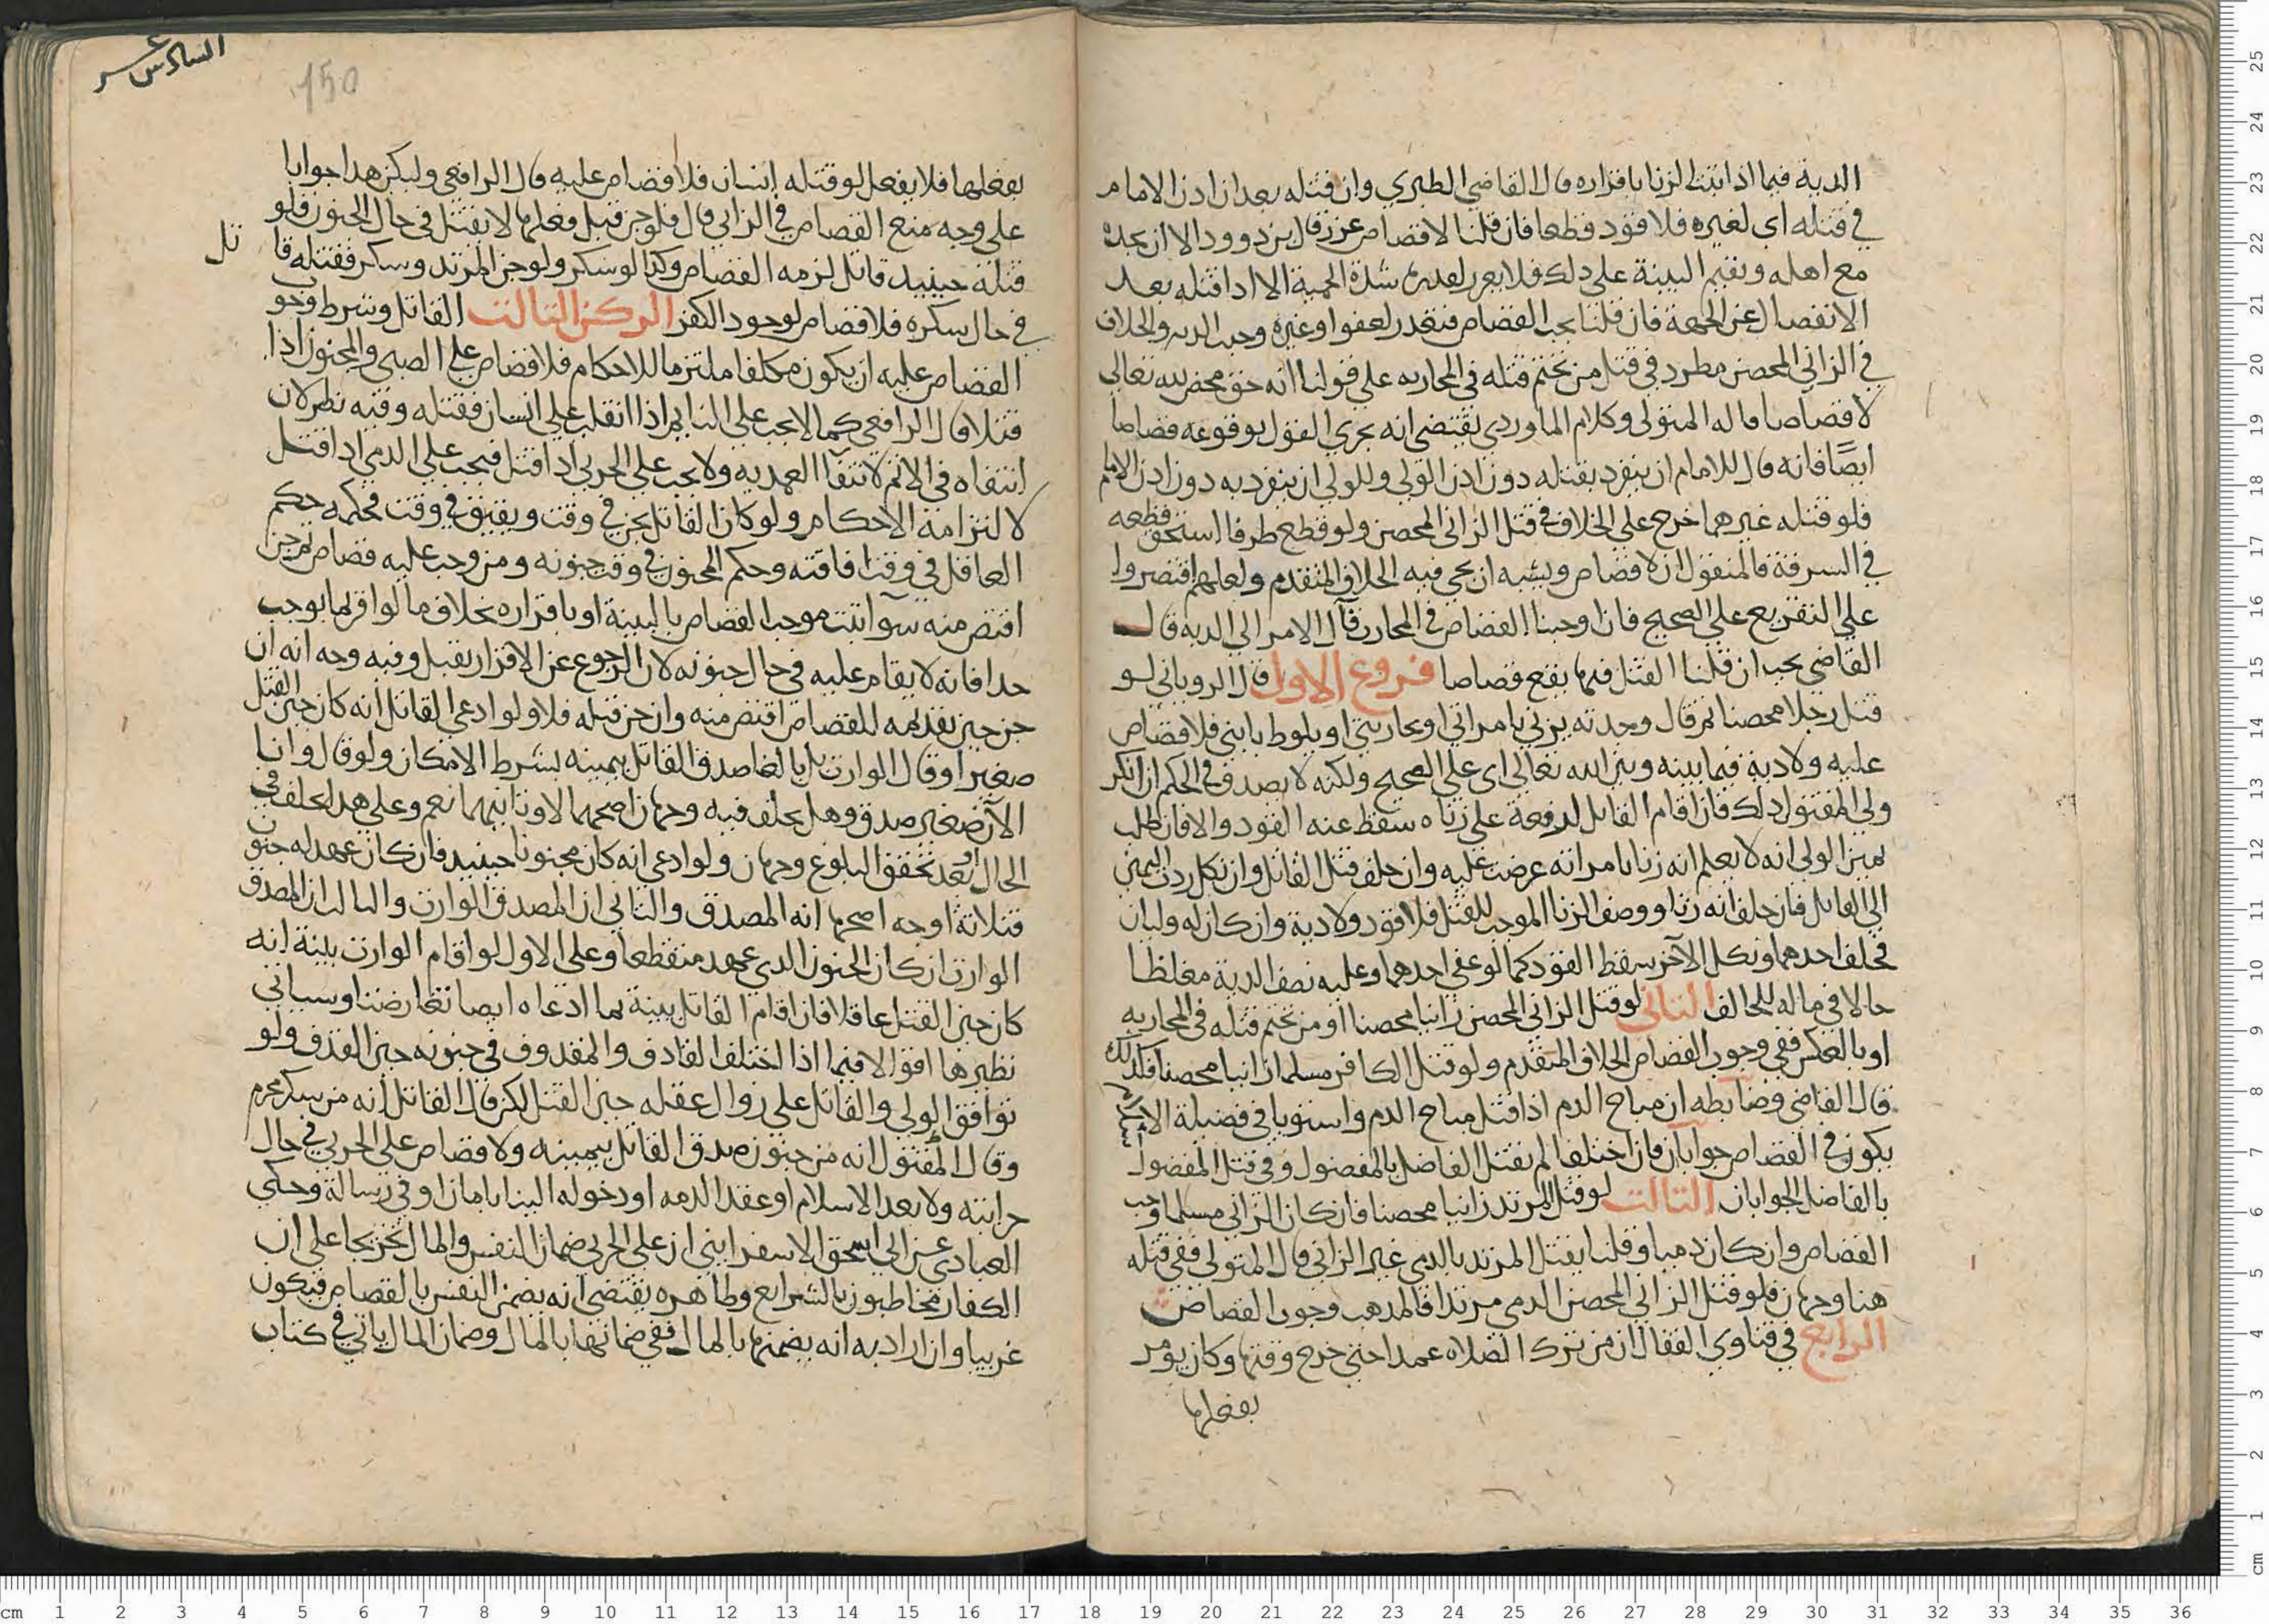 الدية فيما اذا ثبت الزنا باقراره قال القاضي الطبري وان قتله بعد ان اذن الامام
في قتله اى لغيره فلا قود قطعا فان قلنا لا قصاص عزر قال بن دوود الا ان يجده
مع اهله ويقيم البينة على ذلك فلا يعزر لعذره شدة الحمية الا اذا قتله بعد
الانفصال عن الجهة فان قلنا يجب القصاص فتعذر لعفو او غيره وجبت الدية والخلاف
في الزاني المحصن مطرد في قتل من تحتم قتله في المحاربة على قولنا انه حق محض لله تعالى
لا قصاصا قاله المتولى وكلام الماوردي يقتضي انه يجري القول بوقوعه قصاصا
ايضًا فانه قال للامام ان ينفرد بقتله دون اذن الولى وللولى ان ينفرد به دون اذن الامام
فلو قتله غيرهما خرج على الخلاف في قتل الزاني المحصن ولو قطع طرفا استحق قطعه
في السرقة فالمنقول ان لا قصاص ويشبه ان يجي فيه الخلاف المتقدم ولعلهم اقتصروا
على التفريع على الصحيح فان اوجبنا القصاص في المحارب فآل الامر الى الدية قال
القاضى يجب ان قلنا القتل فيها يقع قصاصا فروع الاول قال الروياني لو
قتل رجلا محصنا ثم قال وجدته يزني بامراتي او بجاريتي او يلوط بابني فلا قصاص
عليه ولا دية فيما بينه وبين الله تعالى اى على الصحيح ولكنه لا يصدق في الحكم ان انكر
ولى المقتول ذلك فان اقام القاتل اربعة على زناه سقط عنه القود والا فان طلب
يمين الولى انه لا يعلم انه زنا بامراته عرضت عليه وان حلف قتل القاتل وان نكل ردت اليمين
الى القاتل فان حلف انه زنا ووصف الزنا الموجب للقتل فلا قود ولا دية وان كان له وليان
فحلف احدهما ونكل الآخر سقط القود كما لو عفى احدهما وعليه نصف الدية مغلظا
حالا في ماله للحالف الثاني لو قتل الزاني المحصن زانيا محصنا او من تحتم قتله في المحاربه
او بالعكس ففي وجوب القصاص الخلاف المتقدم ولو قتل الكافر مسلما زانيا محصنا فكذلك
قال القاضي وضابطه ان مباح الدم اذا قتل مباح الدم واستويا في فضيلة الاسلام
يكون في القصاص جوابان فان اختلفا لم يقتل الفاضل بالمفضول وفي قتل المفضول
بالفاضل الجوابان الثالث لو قتل المرتد زانيا محصنا فان كان الزاني مسلما وجب
القصاص وان كان ذميا وقلنا يقتل المرتد بالذمي غير الزاني قال المتولى ففي قتله
هنا وجهان فلو قتل الزاني المحصن الذمي مرتدا فالمذهب وجوب القصاص
الرابع في فتاوى القفال ان من ترك الصلاه عمدا حتى خرج وقتها وكان يومر
بفعلها
السادس عشر
150
بفعلها فلا يفعل لو قتله انسان فلا قصاص عليه قال الرافعي وليكن هذا جوابا
على وجه منع القصاص في الزاني قال فلو جن قبل فعلها لا يقتل في حال الجنون فلو
قتله حينيد قاتل لزمه القصاص وكذا لو سكر ولو جن المرتد وسكر فقتله قا تل
في حال سكره فلا قصاص لوجود الكفر الركن الثالث القاتل وشرط وجوب
القصاص عليه ان يكون مكلفا ملتزما للاحكام فلا قصاص على الصبي والمجنون اذا
قتلا قال الرافعي كما لا يجب على النايم اذا انقلب على انسان فقتله وفيه نظر لان
انتفاه في الاثم لانتفآ العمديه ولا يجب على الحربي اذا قتل فيجب على الذمي اذا قتل
لالتزامه الاحكام ولو كان القاتل يجن في وقت ويفيق في وقت فحكمه حكم
العاقل في وقت افاقته وحكم المجنون في وقت جنونه ومن وجب عليه قصاص ثم جن
اقتص منه سوآ ثبت موجب القصاص بالبينة او باقراره بخلاف ما لو اقر بما يوجب
حدا فانه لا يقام عليه في حال جنونه لان الرجوع عن الاقرار يقبل وفيه وجه انه ان
جن حين تقديمه للقصاص اقتص منه وان جن قبله فلا ولو ادعى القاتل انه كان حين القتل
صغيرا وقال الوارث بل بالغا صدق القاتل بيمينه بشرط الامكان ولو قال وانا
الآن صغير صدق وهل يحلف فيه وجهان اصحهما لا وثانيهما نعم وعلى هذا يحلف في
الحال او بعد تحقق البلوغ وجهان ولو ادعى انه كان مجنونا حينيد فان كان عهد له جنون
فثلاثة اوجه اصحها انه المصدق والثاني ان المصدق الوارث والثالث ان المصدق
الوارث ان كان الجنون الذي عهد منقطعا وعلى الاول لو اقام الوارث بينة انه
كان حين القتل عاقلا فان اقام القاتل بينة بما ادعاه ايضا تعارضتا وسياتي
نظيرها اقوالا فيما اذا اختلف القاذف والمقذوف في جنونه حين القذف ولو
توافق الولى والقاتل على زوال عقله حين القتل لكن قال القاتل انه من سكر محرم
وقال المقتول انه من جنون صدق القاتل بيمينه ولا قصاص على الحربي في حال
حرابته ولا بعد الاسلام او عقد الذمه او دخوله الينا بامان او في رسالة وحكى
العبادي عن ابى اسحق الاسفرايني ان على الحربي ضمان النفس والمال تخريجا على ان
الكفار مخاطبون بالشرايع وظاهره يقتضي انه يضمن النفس بالقصاص فيكون
غريبا وان اراد به انه يضمنها بالمال ففي ضمانها بالمال وضمان المال ياتي في كتاب